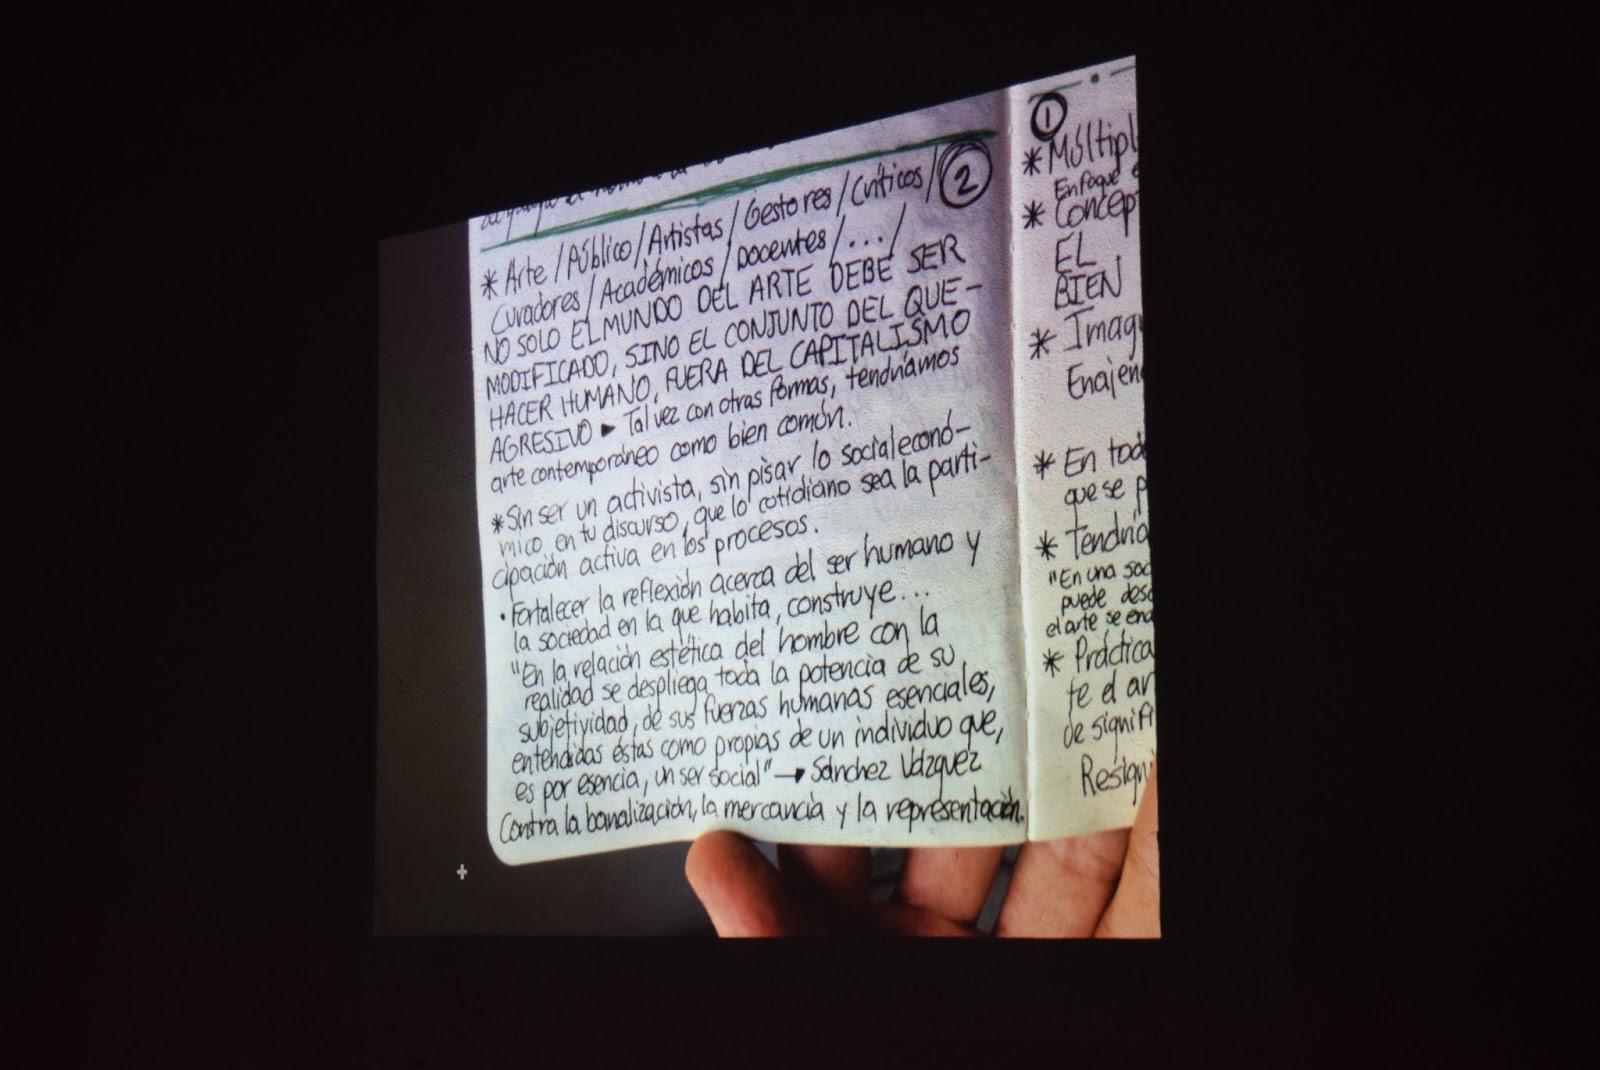 2
* Arte / Público / Artistas / Gestores / Críticos /
Curadores / Académicos / Docentes / ... /
NO SOLO EL MUNDO DEL ARTE DEBE SER
MODIFICADO, SINO EL CONJUNTO DEL QUE-
HACER HUMANO, FUERA DEL CAPITALISMO
AGRESIVO ► Tal vez con otras formas, tendríamos
arte contemporáneo como bien común.
* Sin ser un activista, sin pisar lo socialeconó-
mico en tu discurso, que lo cotidiano sea la parti-
cipación activa en los procesos.
• Fortalecer la reflexión acerca del ser humano y
la sociedad en la que habita, construye...
"En la relación estética del hombre con la
realidad se despliega toda la potencia de su
subjetividad, de sus fuerzas humanas esenciales,
entendidas éstas como propias de un individuo que,
es por esencia, un ser social" → Sánchez Vázquez
Contra la banalización, la mercancía y la representación.
1
* Múltipl
Enfoque
* Concep
EL
BIEN
* Imag
Enajen
* En tod
que se p
* Tendría
"En una soc
puede desa
el arte se ena
* Práctica
te el ar
de signifi
Resign